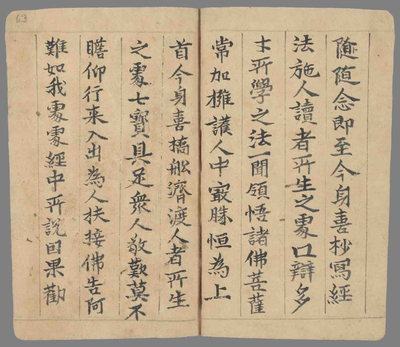 63
随随念即至今身喜抄寫經
法施人讀者所生之處口辯多
才所學之法一聞領悟諸佛菩薩
常加擁護人中寂勝恒為上
首今身喜橋舩濟渡人者所生
之處七寶具足衆人敬歎莫不
瞻仰行来入出為人扶接佛告阿
難如我處處經中所說因果勸